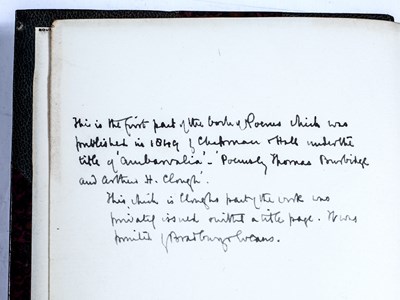 This is the first part of the book of Poems which was
published in 1849 by Chapman & Hall under the
title of 'Ambarvalia' - 'Poems by Thomas Burbidge
and Arthur H. Clough'.
This, which is Clough's part of the work was
privately issued without a title page. It was
printed by Bradbury & Evans.